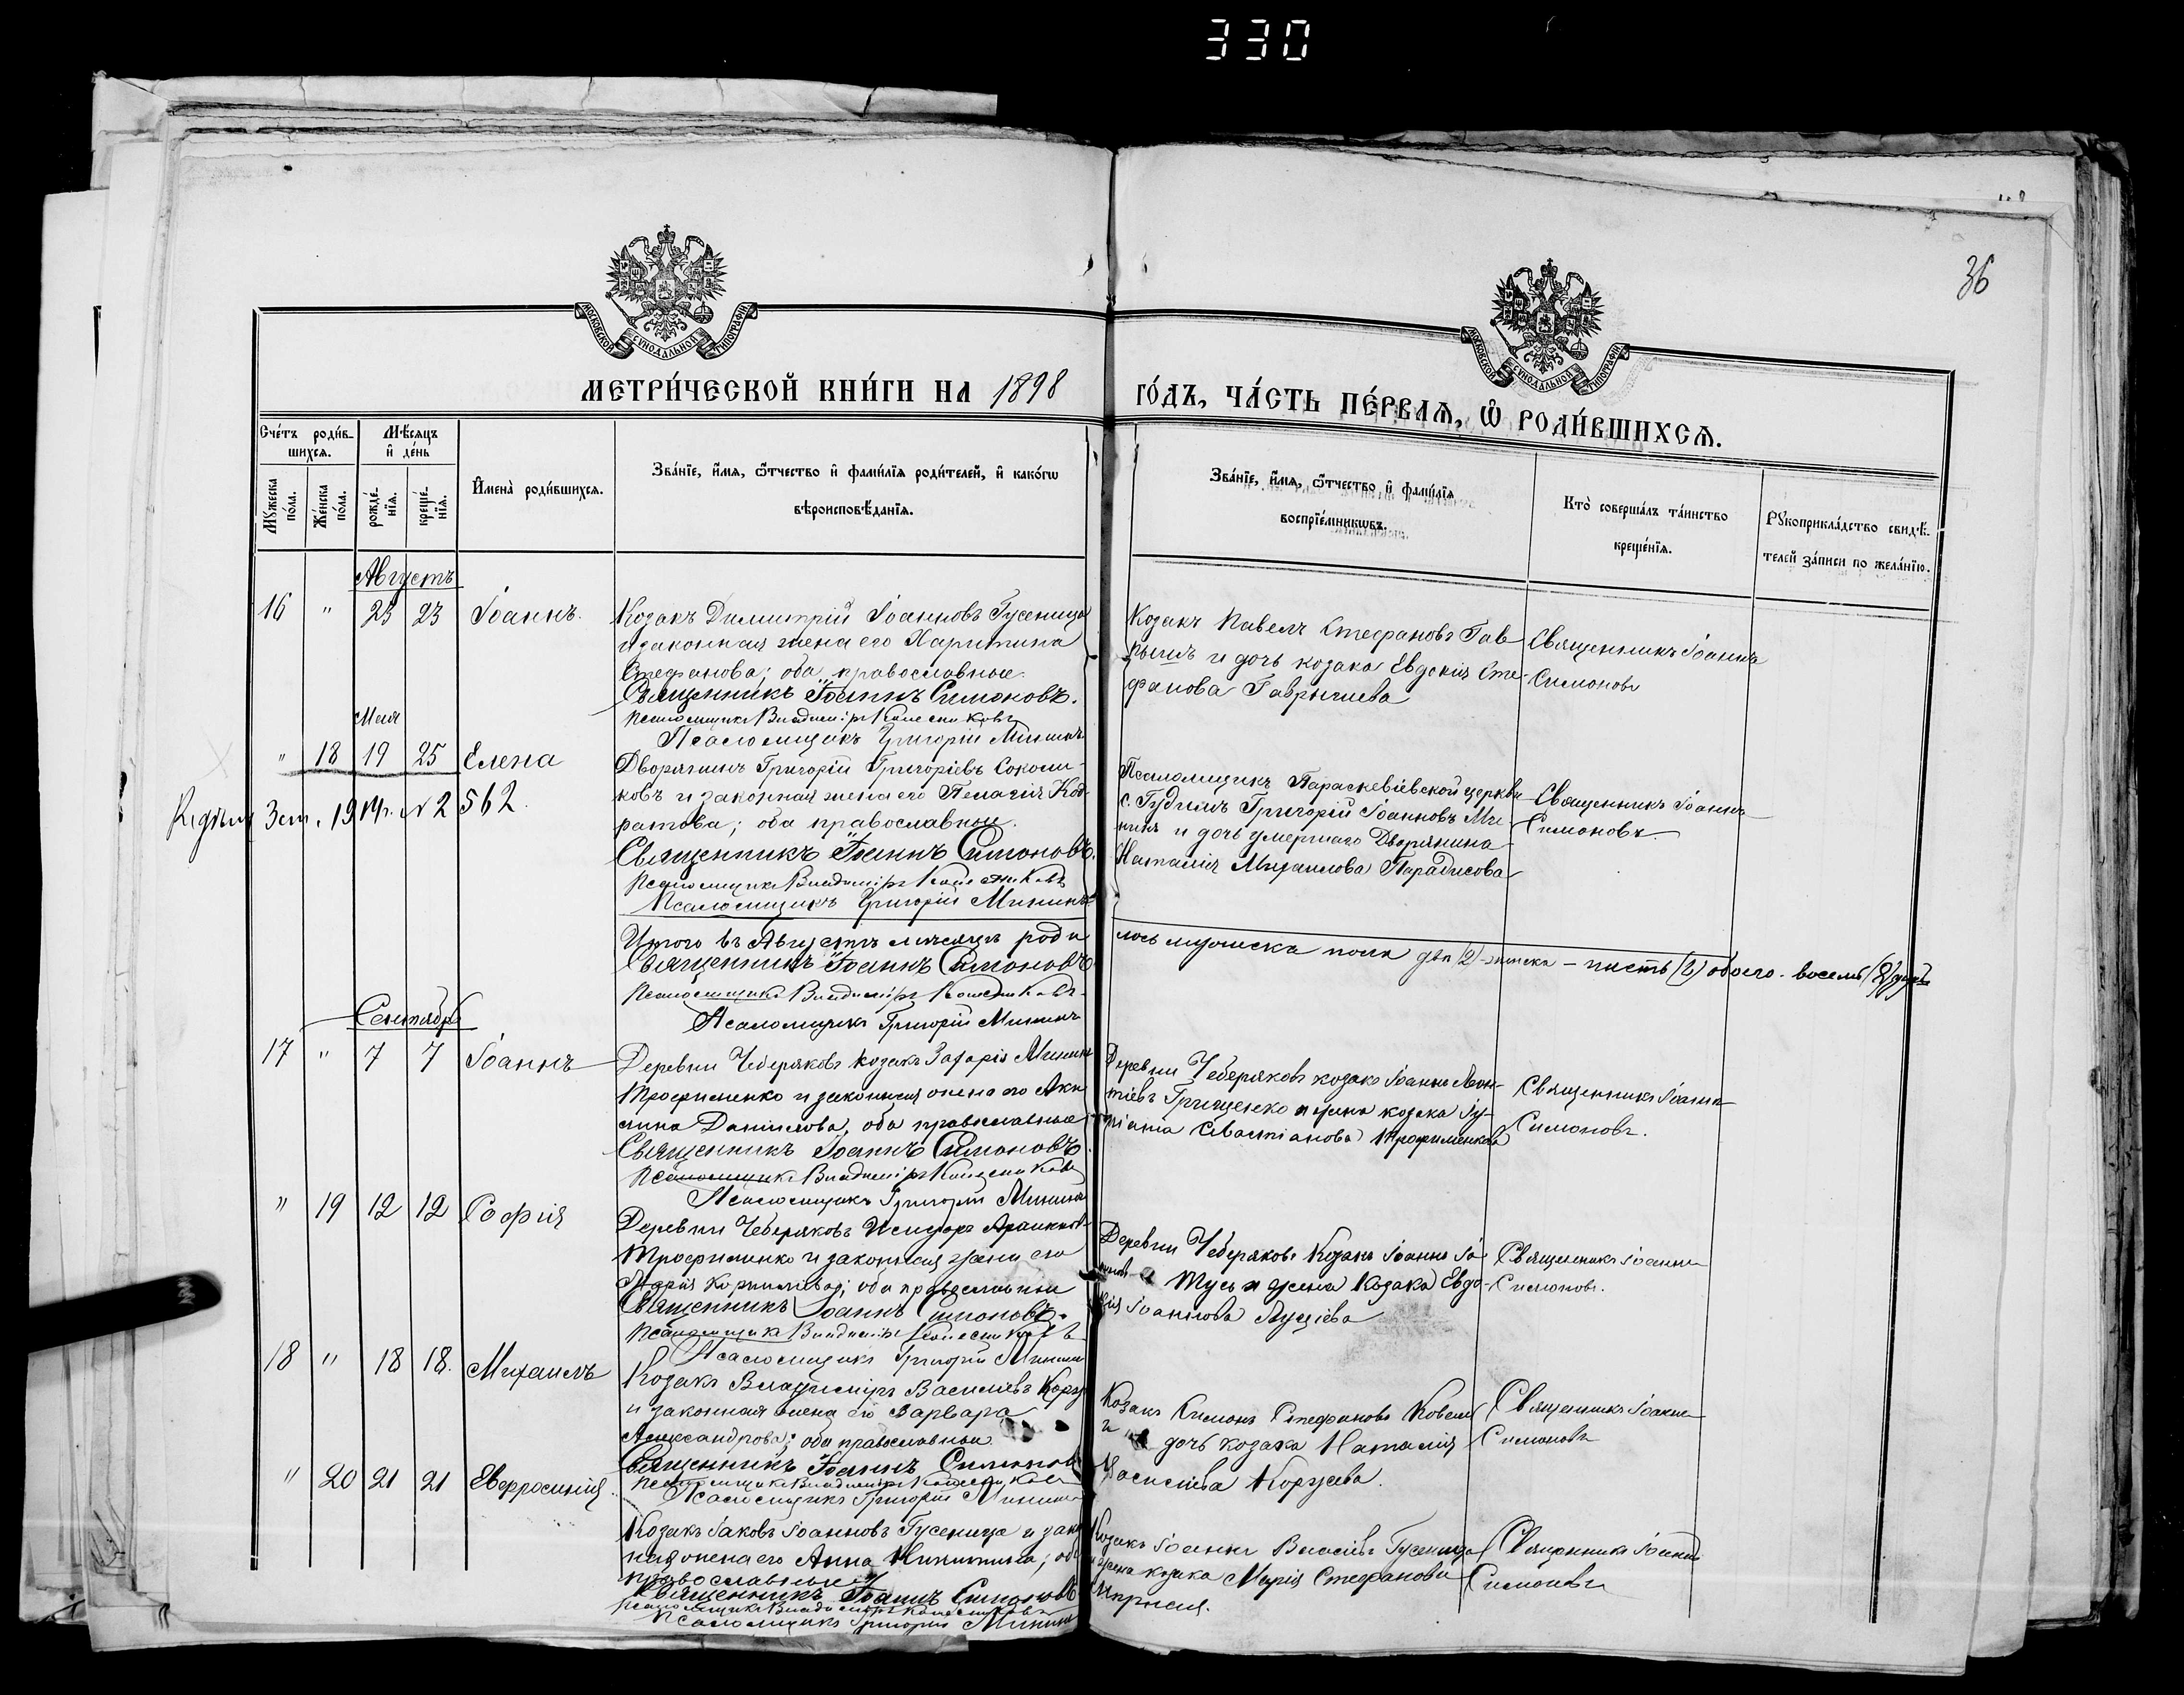 330
36
МОСКОВСКОЙ СѴНОДАЛЬНОЙ ТИПОГРАФІИ
МОСКОВСКОЙ СѴНОДАЛЬНОЙ ТИПОГРАФІИ
МЕТРИ́ЧЕСКОЙ КНИ́ГИ НА 1898
ГО́ДЪ, ЧА́СТЬ ПЕ́РВАѦ, Ѿ РОДИ́ВШИХСѦ.
Сче́тъ роди́в-
шихсѧ.
Мѣ́сѧцъ
и҆ де́нь
Мꙋжеска по́ла.
Же́нска по́ла.
рожде́-
нїѧ.
креще́-
нїѧ.
И҆мена̀ роди́вшихсѧ.
Зва́нїе, и҆́мѧ, ѻ҆́тчество и҆ фами́лїѧ роди́телей, и҆ како́гѡ
вѣроисповѣ́данїѧ.
Зва́нїе, и҆́мѧ, ѻ҆́тчество и҆ фами́лїѧ
воспрїе́мникѡвъ.
Кто̀ соверша́лъ та́инство
креще́нїѧ.
Рꙋкоприкла́дство свидѣ́-
телей за́писи по жела́нїю.
Августъ
16 " 23 23 Іоаннъ.
Козакъ Димитрій Іоанновъ Гусеница
и законная жена его Харитина
Стефанова; оба православные.
Священникъ Іоаннъ Симоновъ.
Псаломщикъ Владиміръ Колесниковъ
Псаломщикъ Григорій Мининъ
Козакъ Павелъ Стефановъ Гав-
рышъ и дочь козака Евдокія Сте-
фанова Гаврышева
Священникъ Іоаннъ
Симоновъ
Мая
" 18 19 25 Елена
Зст. 1914г. № 2562.
Дворянинъ Григорій Григоріевъ Соколи-
ковъ и законная жена его Пелагія Код-
ратова; оба православные.
Священникъ Іоаннъ Симоновъ.
Псаломщикъ Владиміръ Колесниковъ
Псаломщикъ Григорій Мининъ
Псаломщикъ Параскевіевской церкви
с. Гудимъ Григорій Іоанновъ Ми-
нинъ и дочь умершаго Дворянина
Наталія Михаилова Парадисова
Священникъ Іоаннъ
Симоновъ
Итого въ Августѣ мѣсяцѣ роди
лось мужеска пола два (2) женска – шесть (6) обоего восемь (8) душъ
Священникъ Іоаннъ Симоновъ
Псаломщикъ Владиміръ Колесниковъ
Псаломщикъ Григорій Мининъ
Сентябрь
17 " 7 7 Іоаннъ
Деревни Чеберяковъ козакъ Захарія Мининъ
Трофименко и законная жена его Аки-
лина Данилова, оба православные
Священникъ Іоаннъ Симоновъ
Псаломщикъ Владиміръ Колесниковъ
Псаломщикъ Григорій Мининъ
Деревни Чеберяковъ козакъ Іоаннъ Леон-
тіевъ Грищенко и жена козака Іу-
ліанія Севастіанова Трофименкова
Священникъ Іоаннъ
Симоновъ.
" 19 12 12 Софія
Деревни Чеберяковъ Исидоръ
Трофименко и законная жена его
Марія Корниліева; оба православные
Священникъ Іоаннъ Симоновъ.
Псаломщикъ Владиміръ Колесниковъ
Псаломщикъ Григорій Мининъ
Деревни Чеберяковъ Козакъ Іоаннъ Іо-
анновъ Тусь и жена Козака Евдо-
кія Іоаннова
Священникъ Іоаннъ
Симоновъ.
18 " 18 18. Михаилъ
Козакъ Владиміръ Василіевъ Коржъ
и законная жена его Варвара
Александрова; оба православные
Священникъ Іоаннъ Симоновъ
Псаломщикъ Владиміръ Колесниковъ
Псаломщикъ Григорій Мининъ
Козакъ Симонъ Стефановъ
и дочь козака Наталія
Василіева Коржева.
Священникъ Іоаннъ
Симоновъ
" 20 21 21 Евфросинія.
Козакъ Іаковъ Іоанновъ Гусеница и закон
ная жена его Анна Никитина; оба
православные
Священникъ Іоаннъ Симоновъ
Псаломщикъ Владиміръ Колесниковъ
Псаломщикъ Григорій Мининъ
Козакъ Іоаннъ Власіевъ Гусеница
и жена козака Марія Стефанова
Священникъ Іоаннъ
Симоновъ